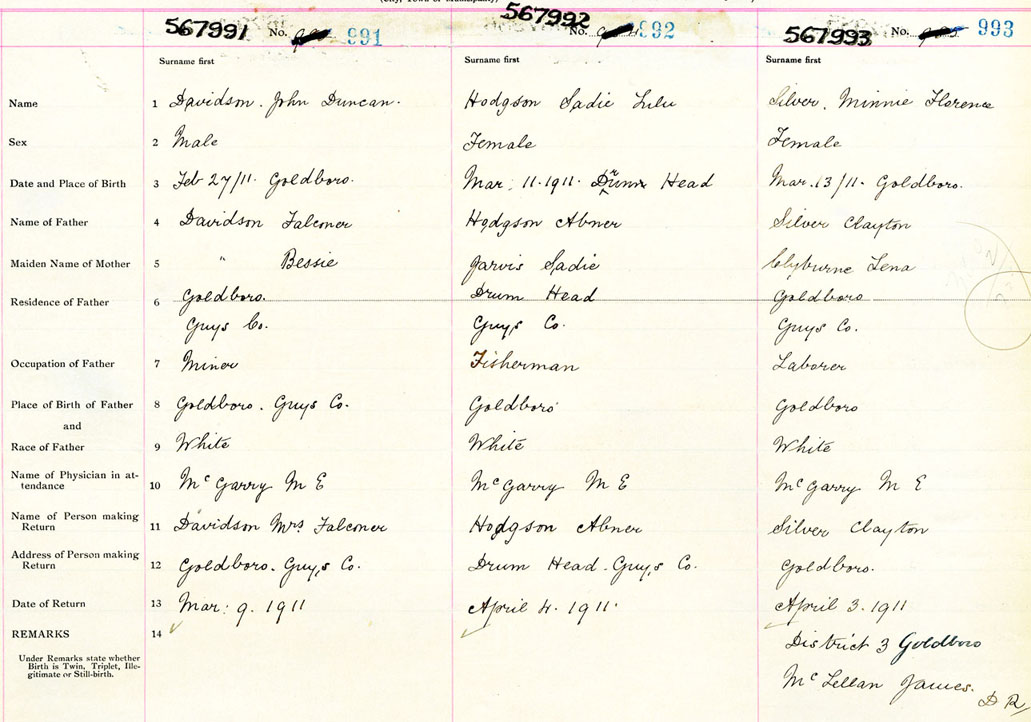 (City, Town or Municipality)
567991 No. 991 567992 No. 992 567993 No. 993
Surname first Surname first Surname first
Name 1 Davidson. John Duncan. Hodgson Sadie Lulu Silver. Minnie Florence
Sex 2 Male Female Female
Date and Place of Birth 3 Feb 27/11. Goldboro. Mar: 11.1911. Drum Head Mar.13/11. Goldboro.
Name of Father 4 Davidson Falconer Hodgson Abner Silver Clayton
Maiden Name of Mother 5 " Bessie Jarvis Sadie Clyburne Lena
Residence of Father 6 Goldboro. Drum Head Goldboro
Guys Co. Guys Co. Guys Co.
Occupation of Father 7 Miner Fisherman Laborer
Place of Birth of Father 8 Goldboro. Guys Co. Goldboro Goldboro
and
Race of Father 9 White White White
Name of Physician in at-
tendance 10 McGarry M E McGarry M E McGarry M E
Name of Person making
Return 11 Davidson Mrs. Falconer Hodgson Abner Silver Clayton
Address of Person making
Return 12 Goldboro. Guys Co. Drum Head. Guys Co. Goldboro.
Date of Return 13 Mar: 9. 1911 April 4. 1911. April 3. 1911
REMARKS 14 District 3 Goldboro
Under Remarks state whether
Birth is Twin, Triplet, Ille-
gitimate or Still-birth.
McLellan James.
D R